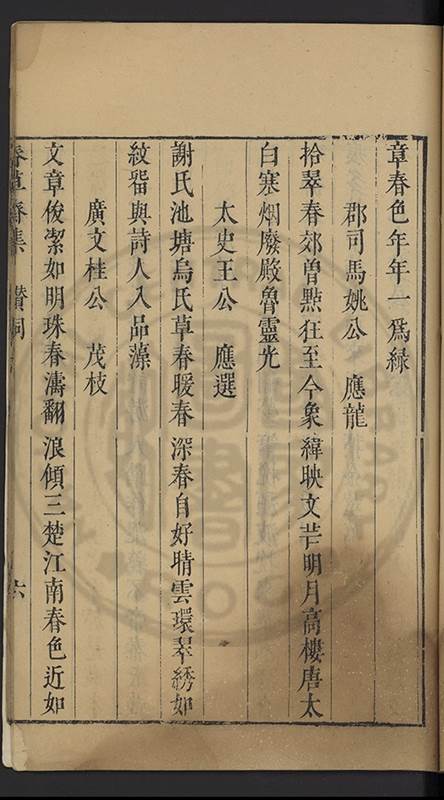 章春色年年一爲綠
郡司馬姚公 應龍
拾翠春郊曽㸃狂至今象緯映文芒明月高樓唐太
白寒烟廢殿魯靈光
太史王公 應選
謝氏池塘烏氏草春暖春深春自好晴雲環翠綉如
紋畱與詩人入品藻
廣文桂公 茂枝
文章俊潔如明珠春濤翻浪傾三楚江南春色近如
春草齋集 贊詞 六